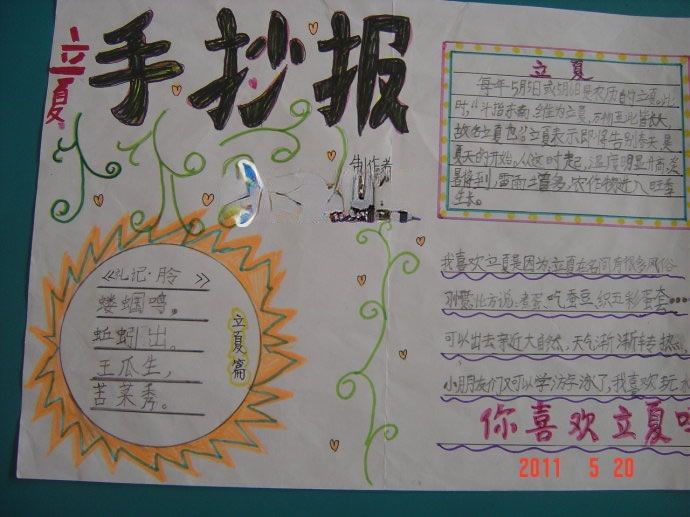 立夏
手抄报
制作者
立夏
每年5月5日或5月6日是农历的立夏。此
时,"斗指东南,维为立夏,万物至此皆长大,
故名立夏也。"立夏表示即将告别春天,是
夏天的开始。从这时起,温度明显升高,炎
暑将到,雷雨增多,农作物进入旺季
生长。
《礼记·月令》
蝼蝈鸣,
蚯蚓出。
王瓜生,
苦菜秀。
立夏篇
我喜欢立夏是因为立夏在名间有很多风俗
习惯:比方说,煮蛋、吃蚕豆、织五彩蛋套……
可以出去亲近大自然,天气渐渐转热
小朋友们又可以学游泳了,我喜欢玩水
你喜欢立夏吗
2011 5 20